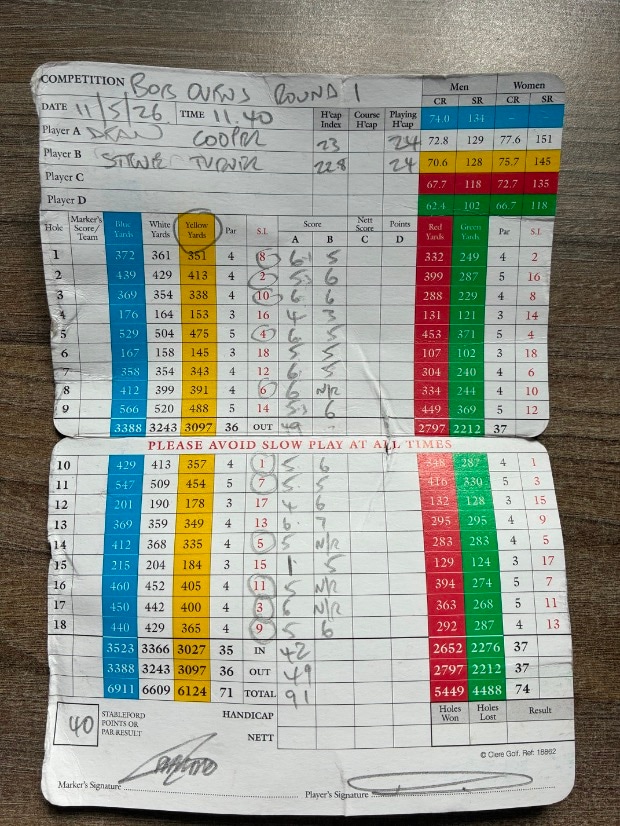 COMPETITION BOB OVENS ROUND 1
Men Women
CR SR CR SR
DATE 11/5/26 TIME 11.40 H'cap Index Course H'cap Playing H'cap 74.0 134 - -
Player A DEAN COOPER 23 24 72.8 129 77.6 151
Player B STEVE TURNER 22.8 24 70.6 128 75.7 145
Player C 67.7 118 72.7 135
Player D 62.4 102 66.7 118
Hole Marker's Score/Team Blue Yards White Yards Yellow Yards Par S.I. Score A B Nett Score C Points D Red Yards Green Yards Par S.I.
1 372 361 351 4 8 6 5 332 249 4 2
2 439 429 413 4 2 5 6 399 287 5 16
3 369 354 338 4 10 6 6 288 229 4 8
4 176 164 153 3 16 4 3 131 121 3 14
5 529 504 475 5 4 6 5 453 371 5 4
6 167 158 145 3 18 5 5 107 102 3 18
7 358 354 343 4 12 6 5 304 240 4 6
8 412 399 391 4 6 6 N/R 334 244 4 10
9 566 520 488 5 14 5 6 449 369 5 12
3388 3243 3097 36 OUT 49 2797 2212 37
PLEASE AVOID SLOW PLAY AT ALL TIMES
10 429 413 357 4 1 5 6 348 287 4 1
11 547 509 454 5 7 5 5 416 330 5 3
12 201 190 178 3 17 4 6 132 128 3 15
13 369 359 349 4 13 6 7 295 295 4 9
14 412 368 335 4 5 5 N/R 283 283 4 5
15 215 204 184 3 15 1 5 129 124 3 17
16 460 452 405 4 11 5 N/R 394 274 5 7
17 450 442 400 4 3 6 N/R 363 268 5 11
18 440 429 365 4 9 5 6 292 287 4 13
3523 3366 3027 35 IN 42 2652 2276 37
3388 3243 3097 36 OUT 49 2797 2212 37
6911 6609 6124 71 TOTAL 91 5449 4488 74
40 STABLEFORD POINTS OR PAR RESULT HANDICAP Holes Won Holes Lost Result
NETT
© Clere Golf. Ref: 16862
Marker's Signature Player's Signature